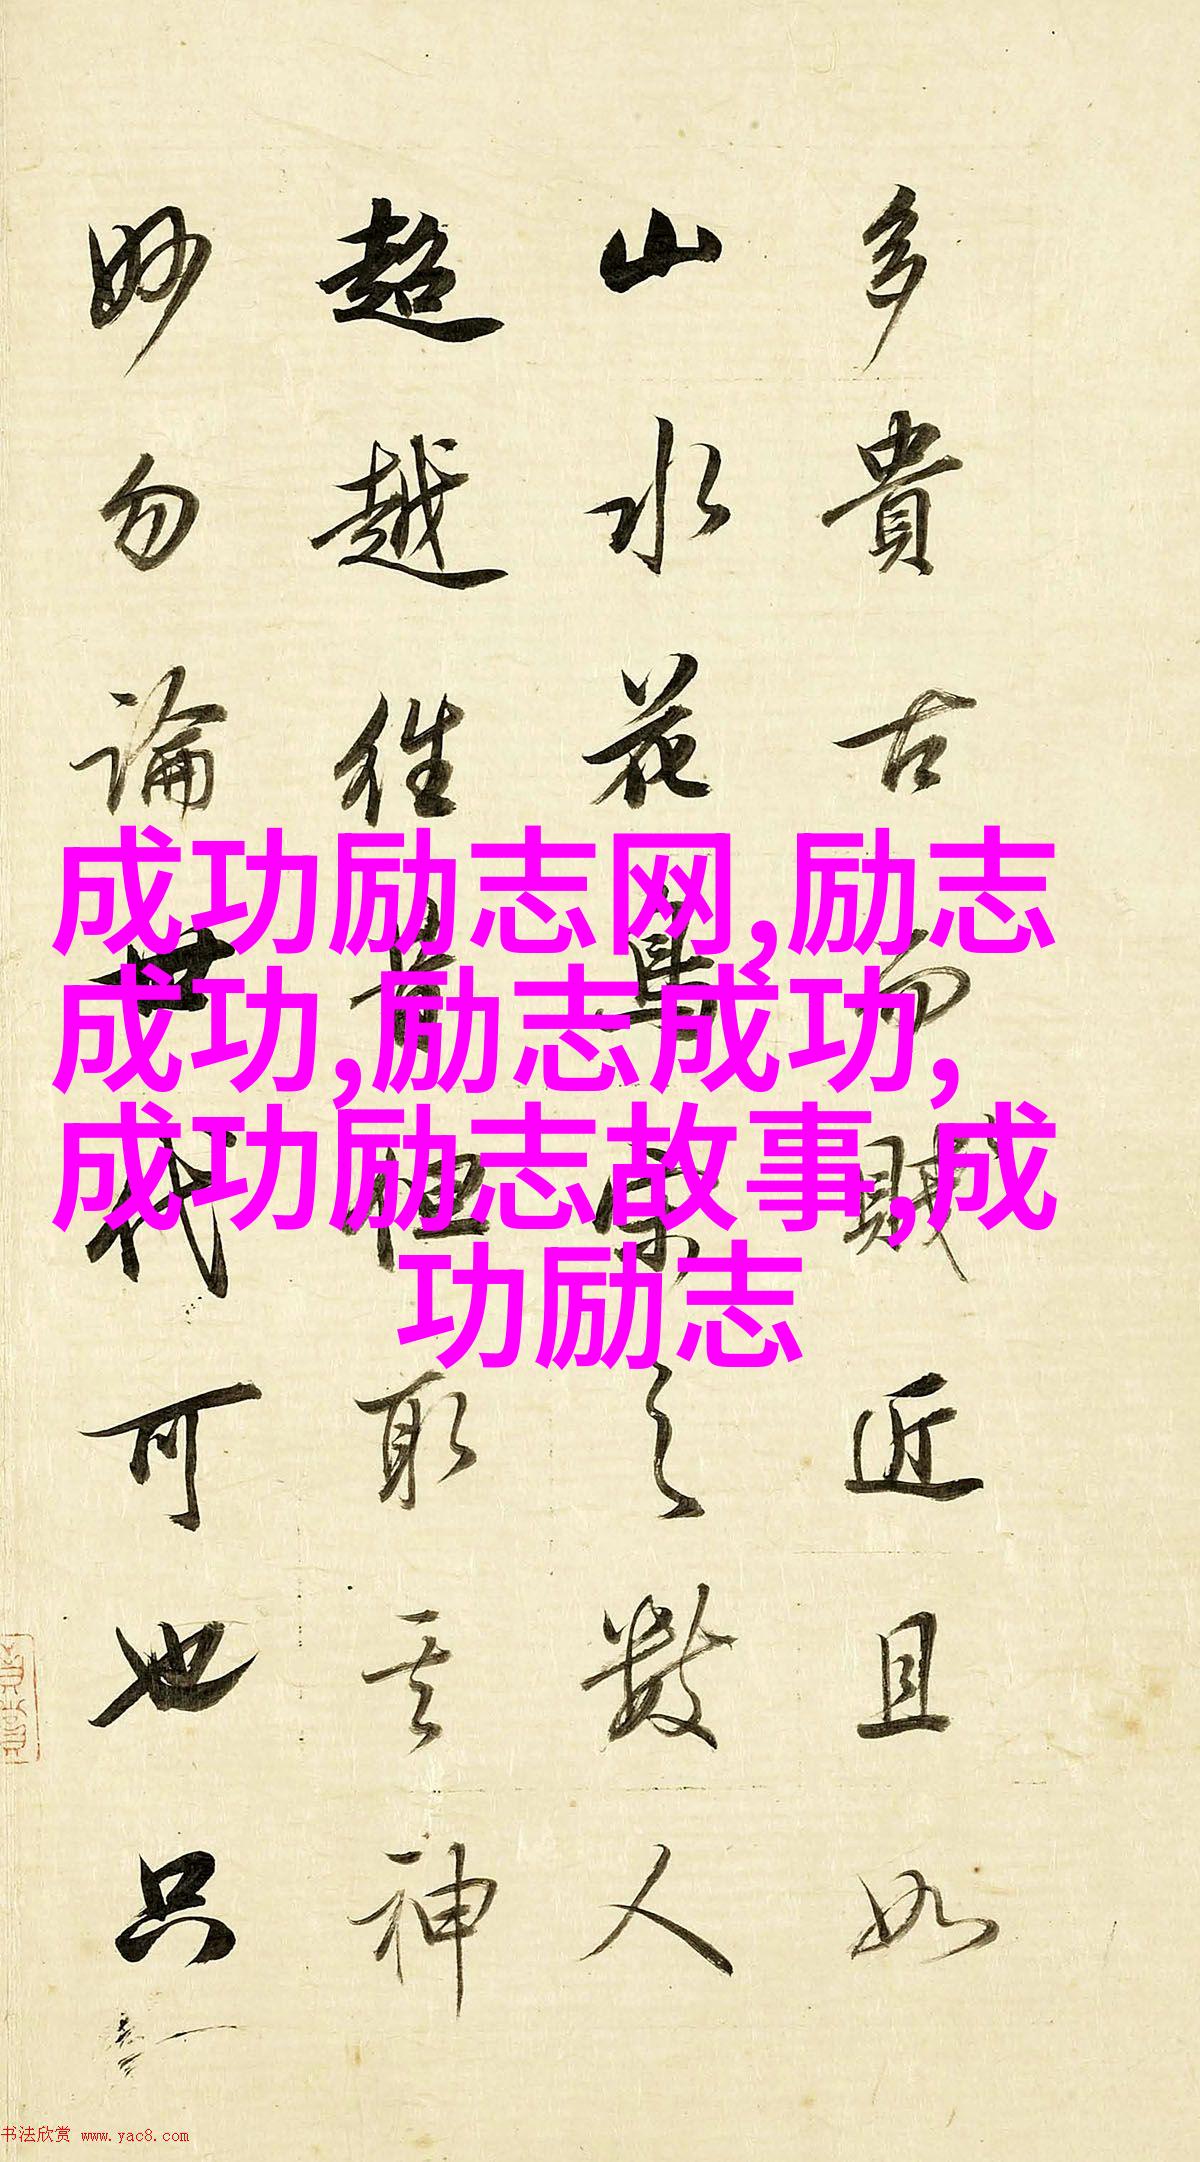 多貴古而賤近且如
山水花鳥宋之數人
超越往昔但取其神
妙勿論世代可也只
成功励志网,励志
成功,励志成功,
成功励志故事,成
功励志
书法欣赏 www.yac8.com